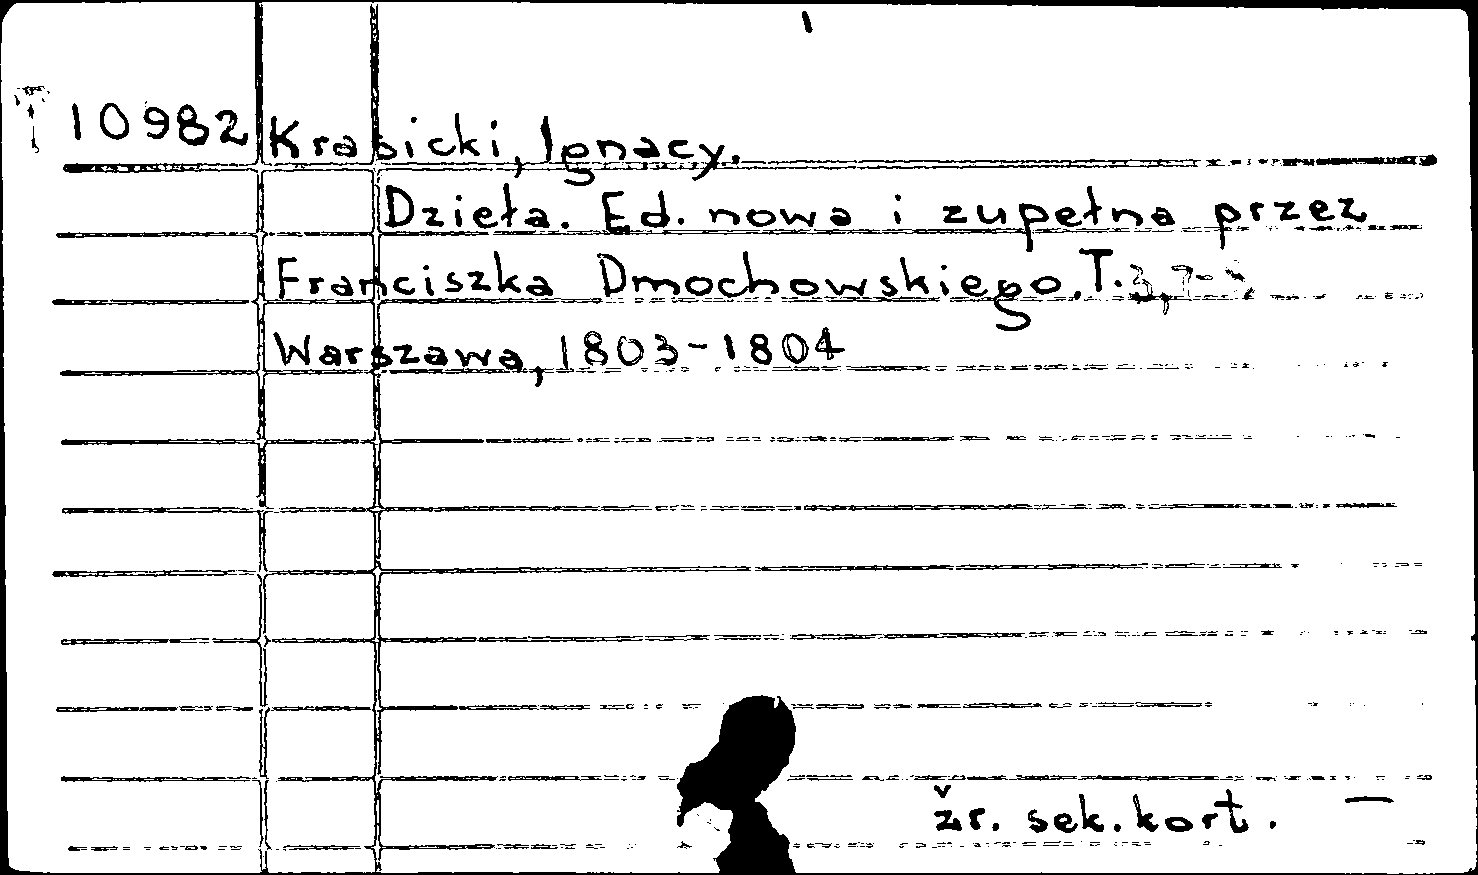 10982 Krasicki, Ignacy.
Dzieła. Ed. nowa i zupełna przez
Franciszka Dmochowskiego. T. 3,
Warszawa, 1803-1804
žr. sek. kort. —